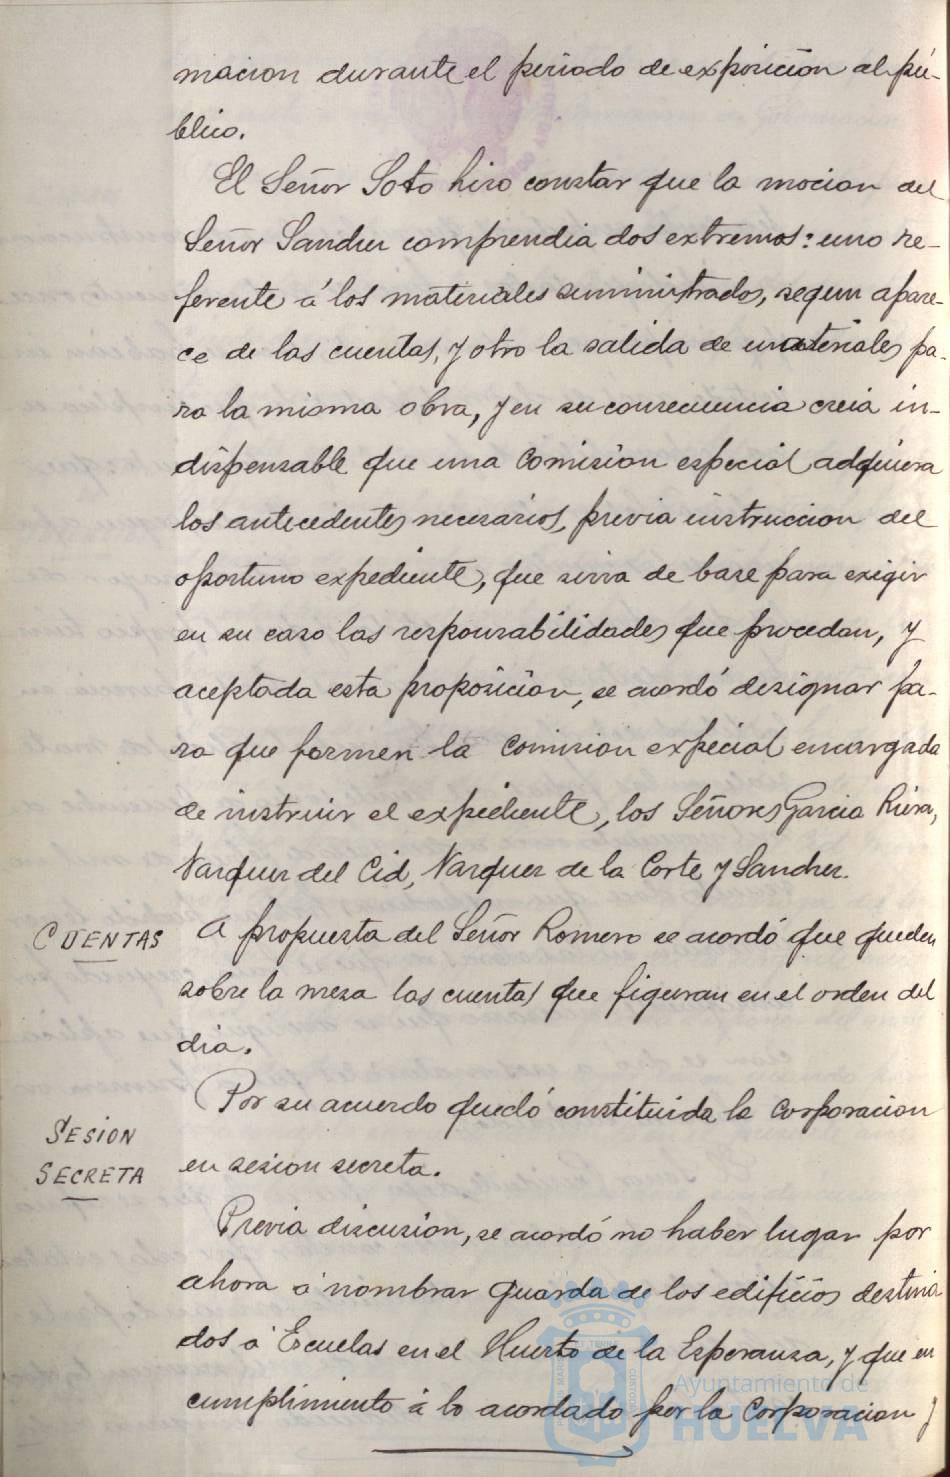 macion durante el período de exposición al pú-
blico.
El Señor Soto hizo constar que la mocion del
Señor Sanchez comprendia dos extremos: uno re-
ferente á los materiales suministrados, segun apare-
ce de las cuentas, y otro la salida de materiales pa-
ra la misma obra, y en su consecuencia creia in-
dispensable que una Comision especial adquiera
los antecedentes necesarios, previa instruccion del
oportuno expediente, que sirva de base para exigir
en su caso las responsabilidades que procedan, y
aceptada esta proposicion, se acordó designar pa-
ra que formen la Comision especial encargada
de instruir el expediente, los Señores Garcia
Vazquez del Cid, Vazquez de la Corte y Sanchez.
CUENTAS
A propuesta del Señor Romero se acordó que queden
sobre la mesa las cuentas que figuran en el orden del
dia.
SESION
SECRETA
Por su acuerdo quedó constituida la Corporacion
en sesion secreta.
Previa discusion, se acordó no haber lugar por
ahora á nombrar guarda de los edificios destina
dos á Escuelas en el Huerto de la Esperanza, y que en
cumplimiento á lo acordado por la Corporacion y
Ayuntamiento de
HUELVA